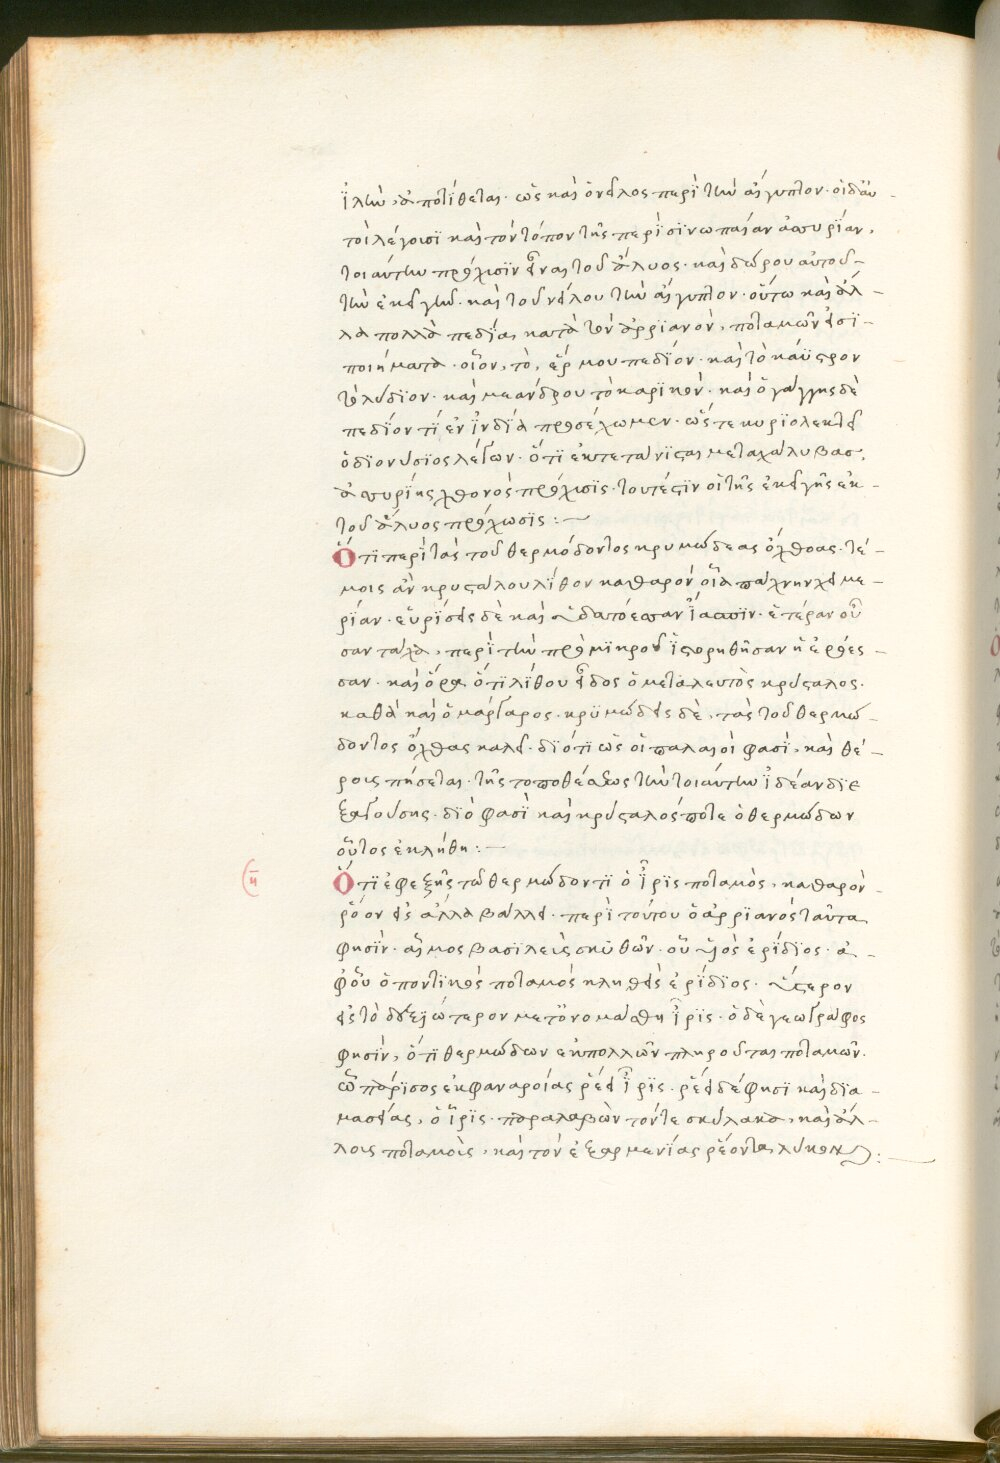 ἰλὺν ἀποτίθεται· ὡς καὶ ὁ νεῖλος περὶ τὴν αἴγυπτον· οἱ δ' αὐ-
τοὶ λέγουσι καὶ τὸν τόπον τῆς περὶ σινωπαίαν ἀσσυρίαν,
τοιαύτην πρόχυσιν εἶναι τοῦ ἅλυος· καὶ δώρου αὐτοῦ
τὴν ἐκεῖ γῆν· καὶ τοῦ νείλου τὴν αἴγυπτον· οὕτω καὶ ἄλ-
λα πολλὰ πεδία, κατὰ τὸν ἀρριανὸν, ποταμῶν εἰσὶ
ποιήματα· οἷον, τὸ, ἕρμου πεδίον· καὶ τὸ καΰστρον
τὸ λύδιον· καὶ μεάνδρου τὸ καρικὸν· καὶ ὁ γάγγης δὲ
πεδίον τί ἐν ἰνδίᾳ προσέχωμεν· ὥστε κυριολεκτεῖ
ὁ διονύσιος λέγων· ὅτι ἐκτετάνισται μετὰ χάλυβας,
ἀσσυρίης χθονὸς πρόχυσις· τουτέστιν οἱ τῆς ἐκεῖ γῆς ἐκ
τοῦ ἅλυος πρόχωσις:
Ὅτι περὶ τὰς τοῦ θερμόδοντος κρυμώδεας ὄχθοας· τέ-
μοις ἂν κρυστάλου λίθον καθαρὸν οἷα πάχνην χειμε-
ρίαν· εὑρίσεις δὲ καὶ ὑδατόεσσαν ἴασπιν· ἑτέραν οὖ
σαν τάχα, περὶ τὴν πρὸ μικροῦ ἱστορηθῆσαν ἠερόες-
σαν· καὶ ὅρα ὅτι λίθου εἶδος ὁ μεταλευτὸς κρύσταλος·
καθὰ καὶ ὁ μάργαρος· κρυμώδεις δὲ, τὰς τοῦ θερμώ-
δοντος ὄχθας καλεῖ· διότι ὡς οἱ παλαιοί φασί, καὶ θέ-
ροις πήσεται· τῆς τοποθέσεως τὴν τοιαύτην ἰδέαν διε
ξαγούσης· διό φασι καὶ κρύσταλός ποτε ὁ θερμώδων
οὗτος ἐκλήθη:
η Ὅτι ἐφεξῆς τῷ θερμώδοντι ὁ ἶρις ποταμὸς, καθαρὸν
ῥόον εἰς ἅλλα βάλλει· περὶ τούτου ὁ ἀρριανός ταῦτα
φησίν· αἷμος βασιλεὺς σκυθῶν· οὗ υἱὸς ἐρίδιος· ἀ-
φ' οὗ ὁ ποντικὸς ποταμὸς κληθεὶς ἐρίδιος· ὕστερον
εἰς τὸ δυεξώτερον μετονομάσθη ἶρις· ὁ δὲ γεωγράφος
φησίν, ὅτι θερμώδων ἐκ πολλῶν πληροῦται ποταμῶν·
ᾧ πάρισος ἐκ φαναροίας ῥέει ἶρις· ῥέει δέ φησι καὶ δια
μασείας, ὁ ἶρις· παραλαβὼν τόν τε σκύλακα, καὶ ἄλ-
λοις ποταμοὶς, καὶ τὸν ἐξ ἀρμενίας ῥέοντα λύκον: